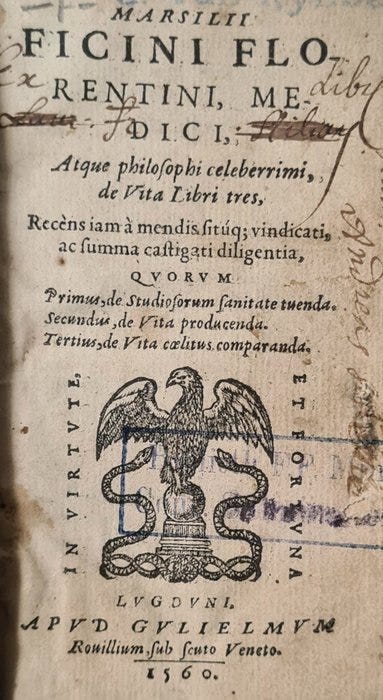 MARSILII
FICINI FLO-
RENTINI, ME-
DICI,
Atque philosophi celeberrimi,
de Vita Libri tres,
Recèns iam à mendis sitúq; vindicati,
ac summa castigati diligentia,
QVORVM
Primus, de Studiosorum sanitate tuenda.
Secundus, de Vita producenda.
Tertius, de Vita cœlitus comparanda.
IN VIRTVTE,
ET FORTVNA
LVGDVNI,
APVD GVLIELMVM
Rouillium, sub scuto Veneto.
1560.
Ex
Liby
Andreas